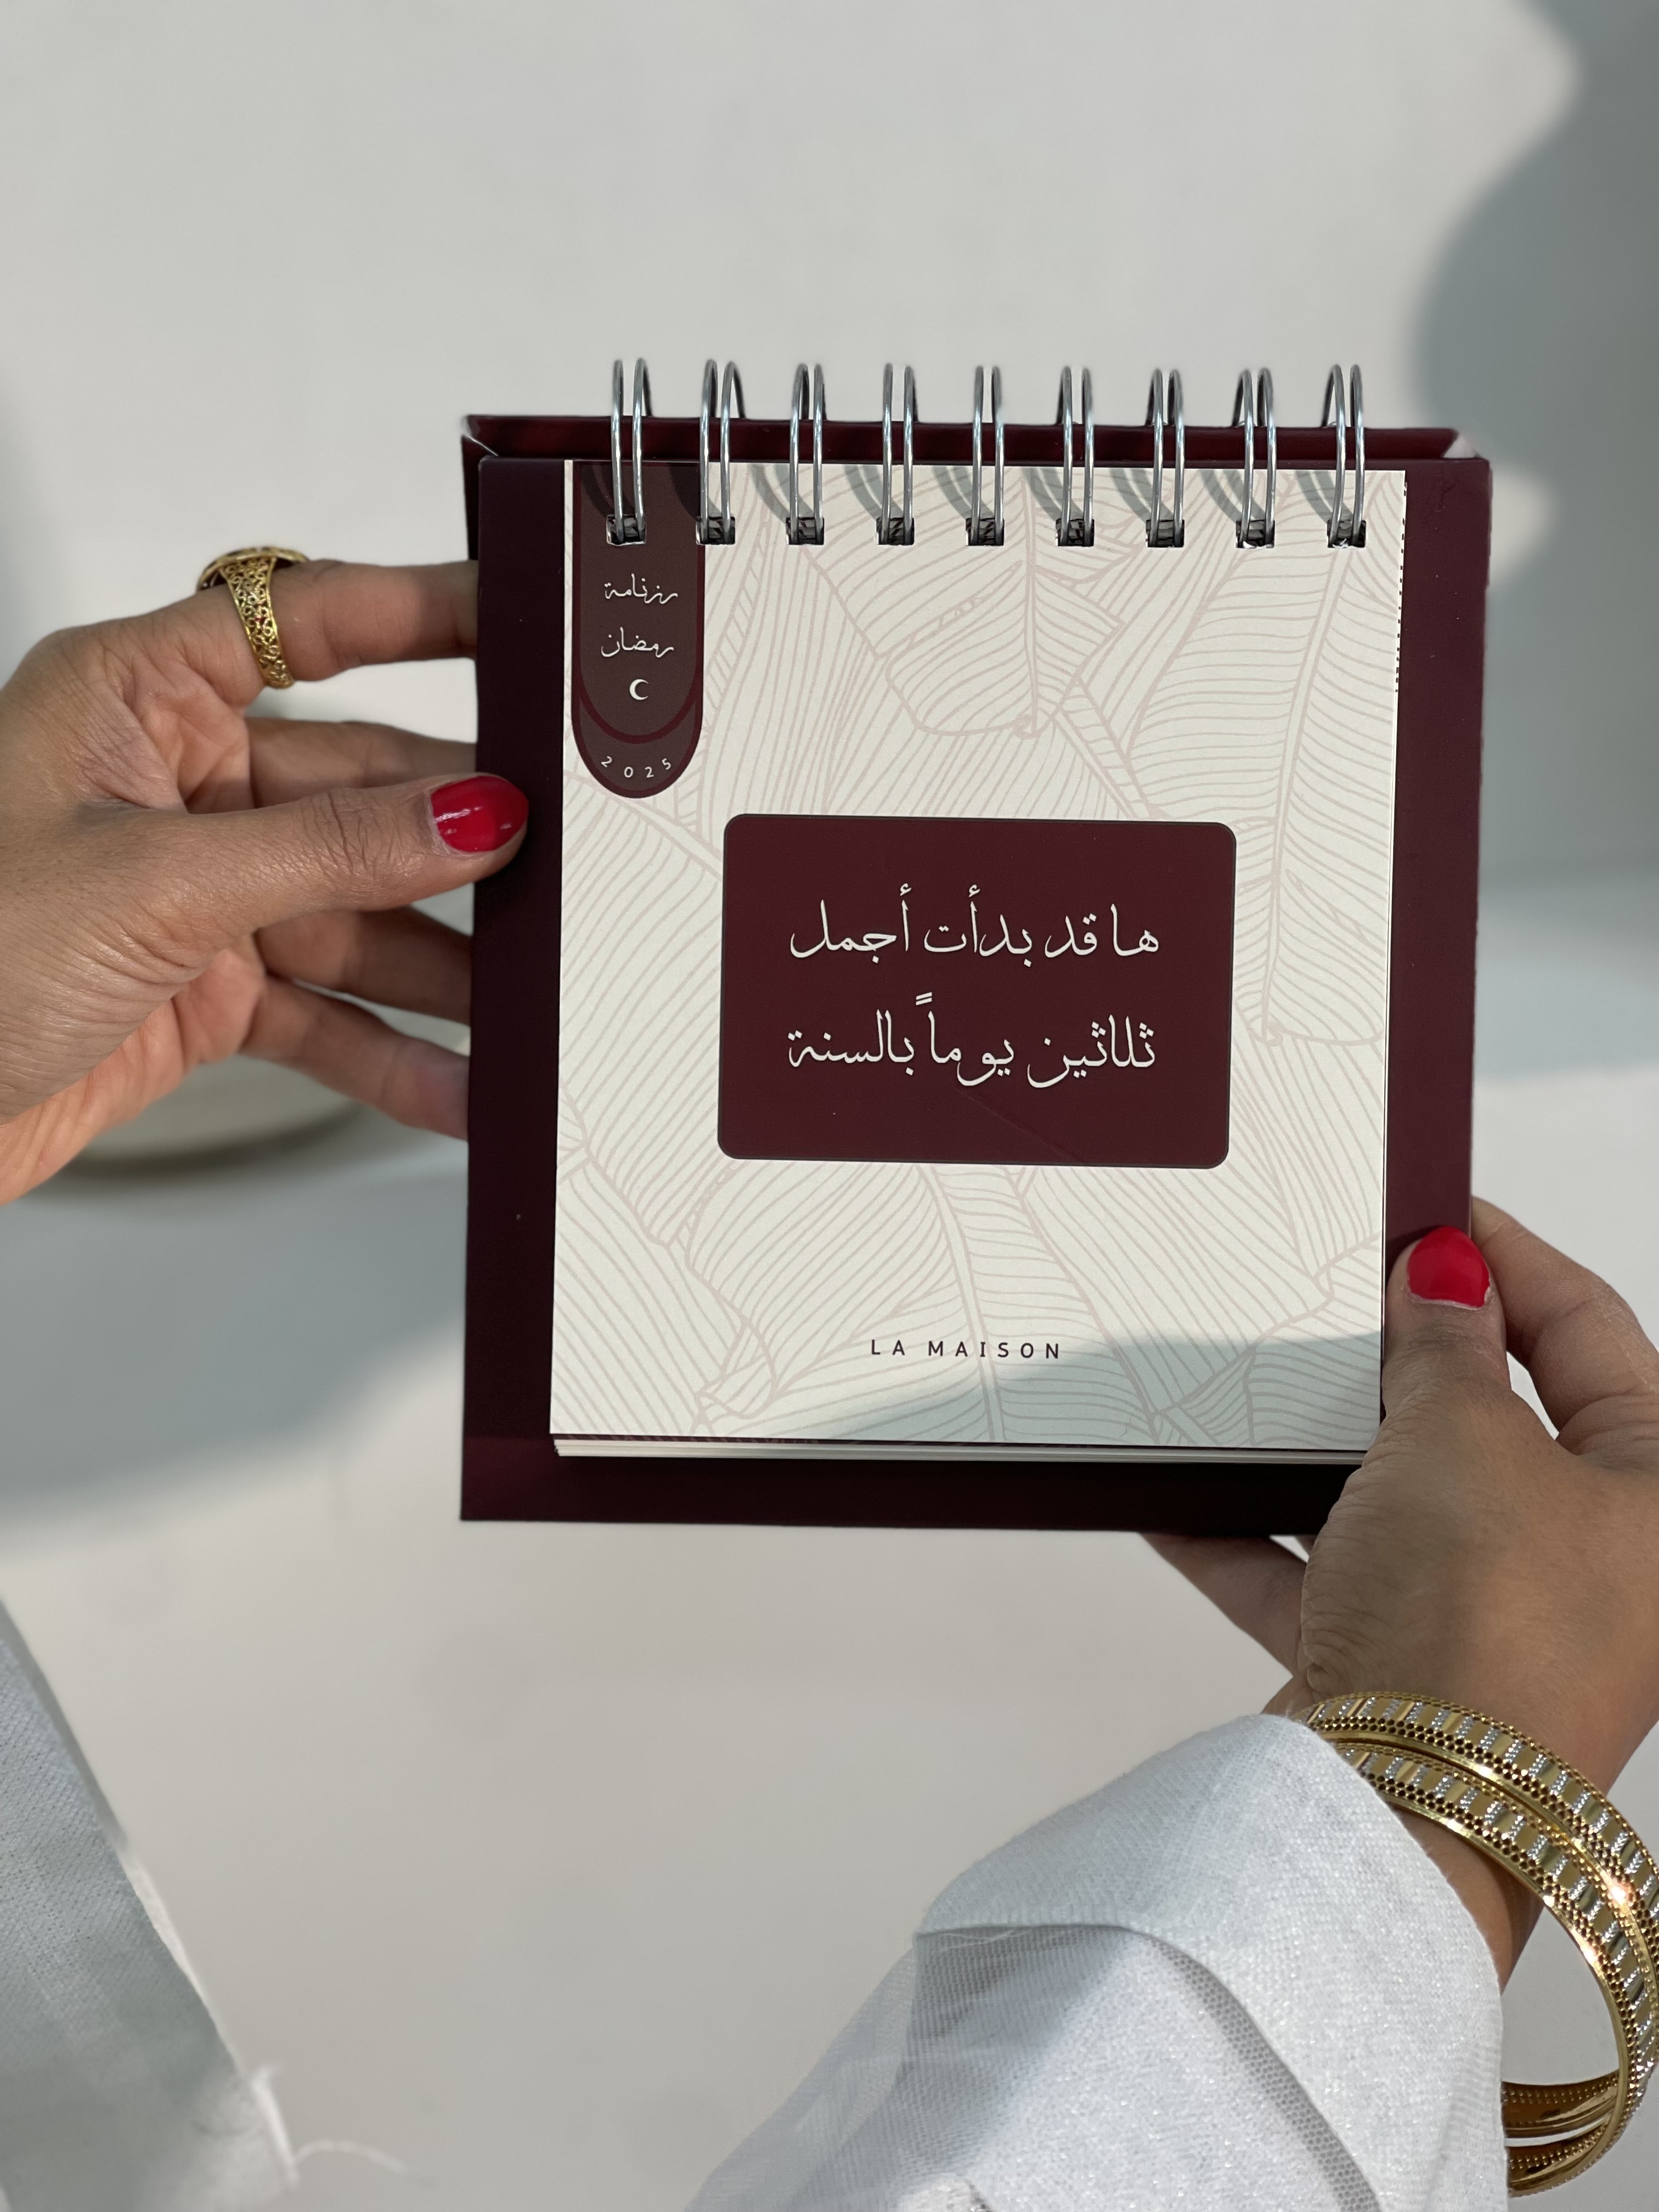 رزنامة
رمضان
2025
ها قد بدأت أجمل
ثلاثين يوماً بالسنة
LA MAISON